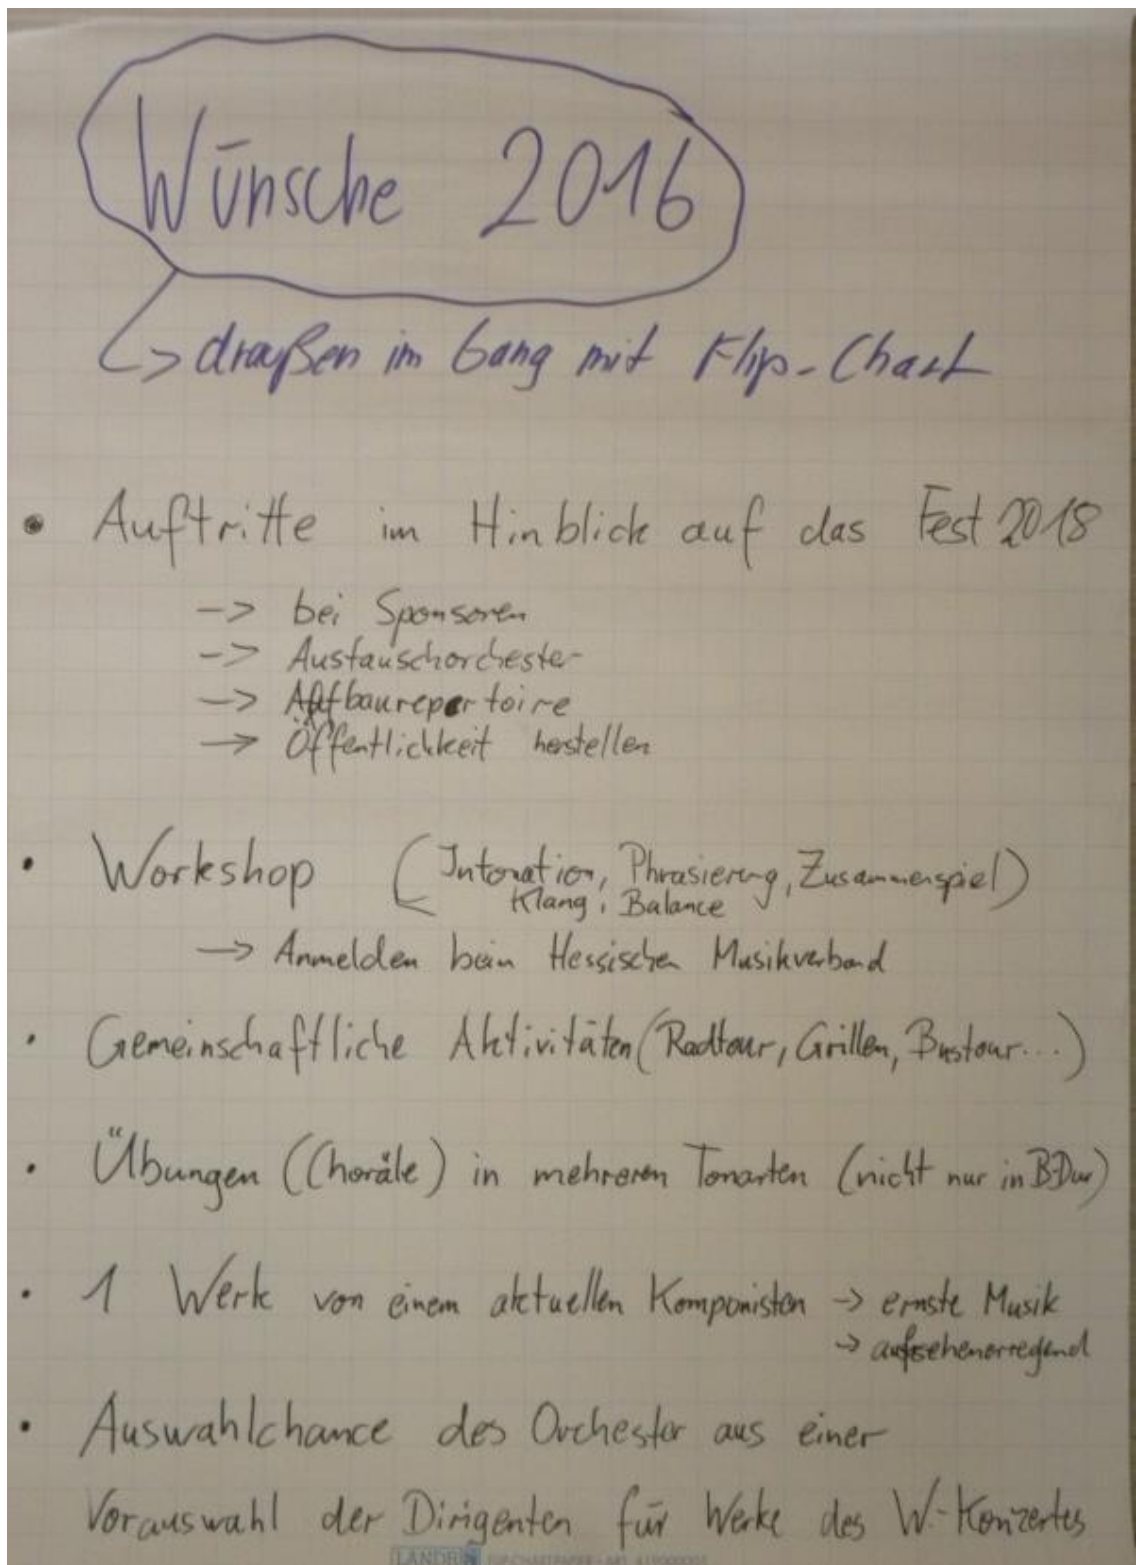 Wünsche 2016
↳ draußen im Gang mit Flip-Chart
• Auftritte im Hinblick auf das Fest 2018
-> bei Sponsoren
-> Austauschorchester
-> Aufbaurepertoire
-> Öffentlichkeit herstellen
• Workshop (Intonation, Phrasierung, Zusammenspiel)
Klang, Balance
-> Anmelden beim Hessischen Musikverband
• Gemeinschaftliche Aktivitäten (Radtour, Grillen, Bustour...)
• Übungen (Choräle) in mehreren Tonarten (nicht nur in B-Dur)
• 1 Werk von einem aktuellen Komponisten -> ernste Musik
-> aufsehenerregend
• Auswahlchance des Orchester aus einer
Vorauswahl der Dirigenten für Werke des W.-Konzertes
LANDRÉ